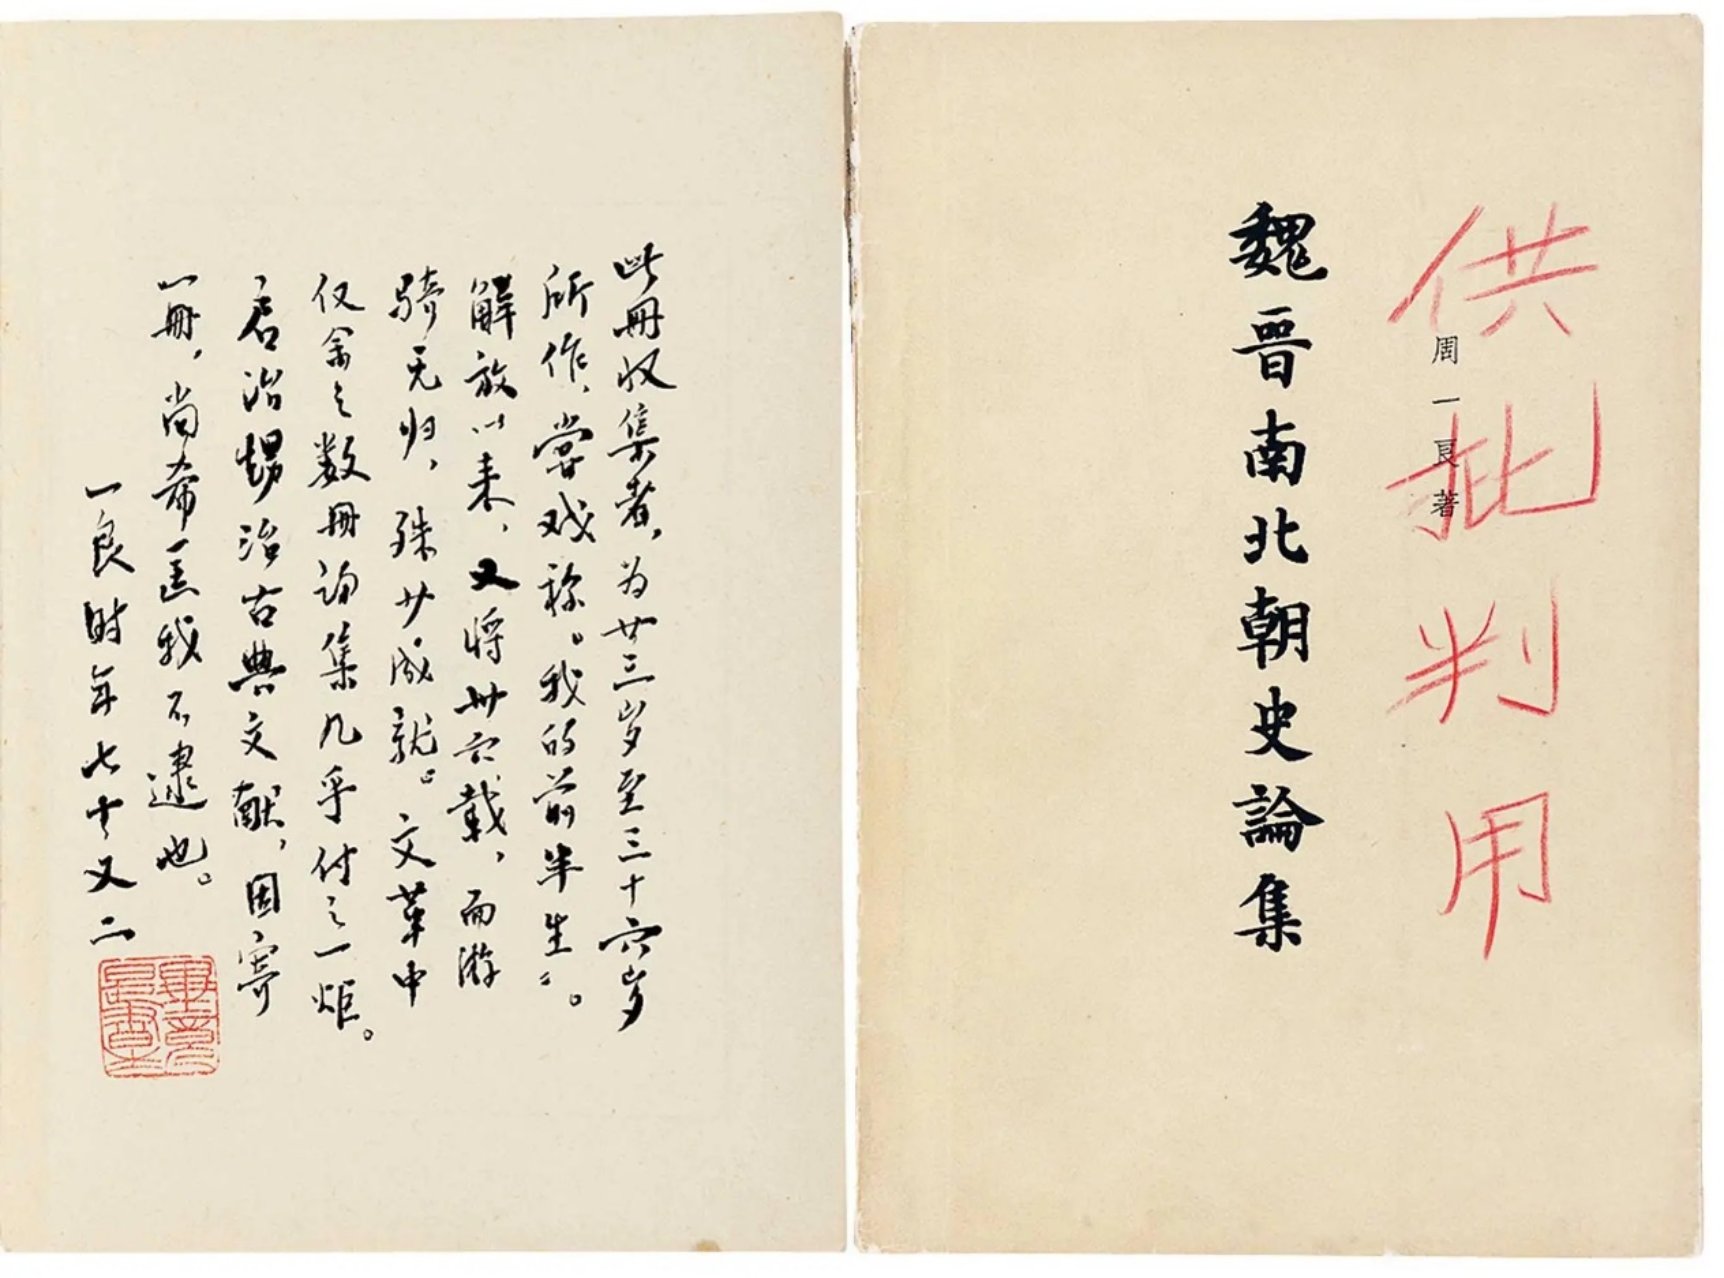 供批判用
周一良著
魏晉南北朝史論集
此册收集者，为廿三岁至三十六岁
所作，尝戏称“我的前半生”。
解放以来，又将卅六载，而游
骑无归，殊少成就。文革中
仅余之数册论集几乎付之一炬。
启治甥治古典文献，因寄
一册，尚希一匡我不逮也。
一良时年七十又二
畢竟是書生